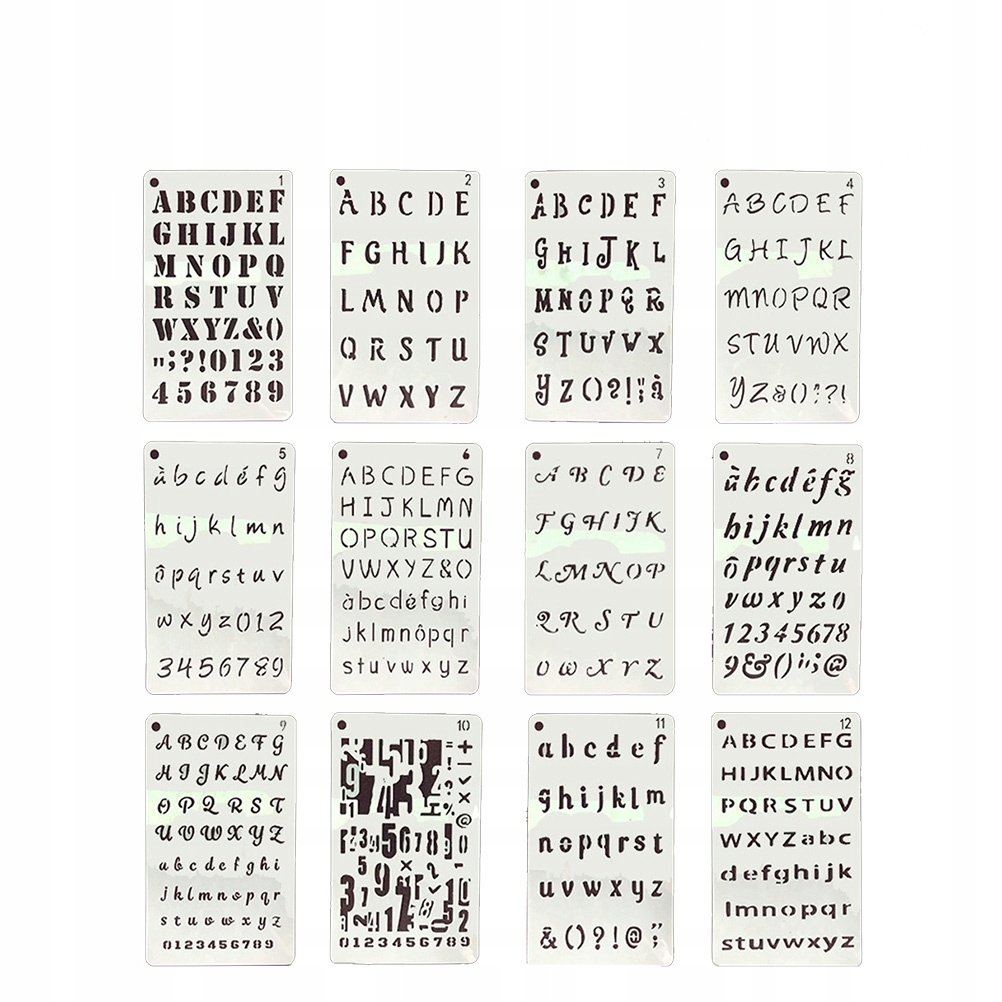 1
ABCDEF
GHIJKL
MNOPQ
RSTUV
WXYZ&()
";?!0123
456789
2
ABCDE
FGHIJK
LMNOP
QRSTU
VWXYZ
3
ABCDEF
GHIJKL
MNOPQR
STUVWX
YZ()?!;"à
4
ABCDEF
GHIJKL
MNOPQR
STUVWX
YZ&():?!
5
àbcdéfg
hijklmn
ôpqrstuv
wxyz012
3456789
6
ABCDEFG
HIJKLMN
OPQRSTU
VWXYZ&()
àbcdéfghi
jklmnôpqr
stuvwxyz
7
ABCDE
FGHIJK
LMNOP
QRSTU
VWXYZ
8
àbcdéfg
hijklmn
ôpqrstu
vwxyz0
12345678
9&()";@
9
ABCDEFG
HIJKLMN
OPQRST
UVWXYZ
abcdefghi
jklmnopqr
stuvwxyz
0123456789
10
0123456789
11
abcdef
ghijklm
nopqrst
uvwxyz
&()?!@;
12
ABCDEFG
HIJKLMNO
PQRSTUV
WXYZabc
defghijk
lmnopqr
stuvwxyz